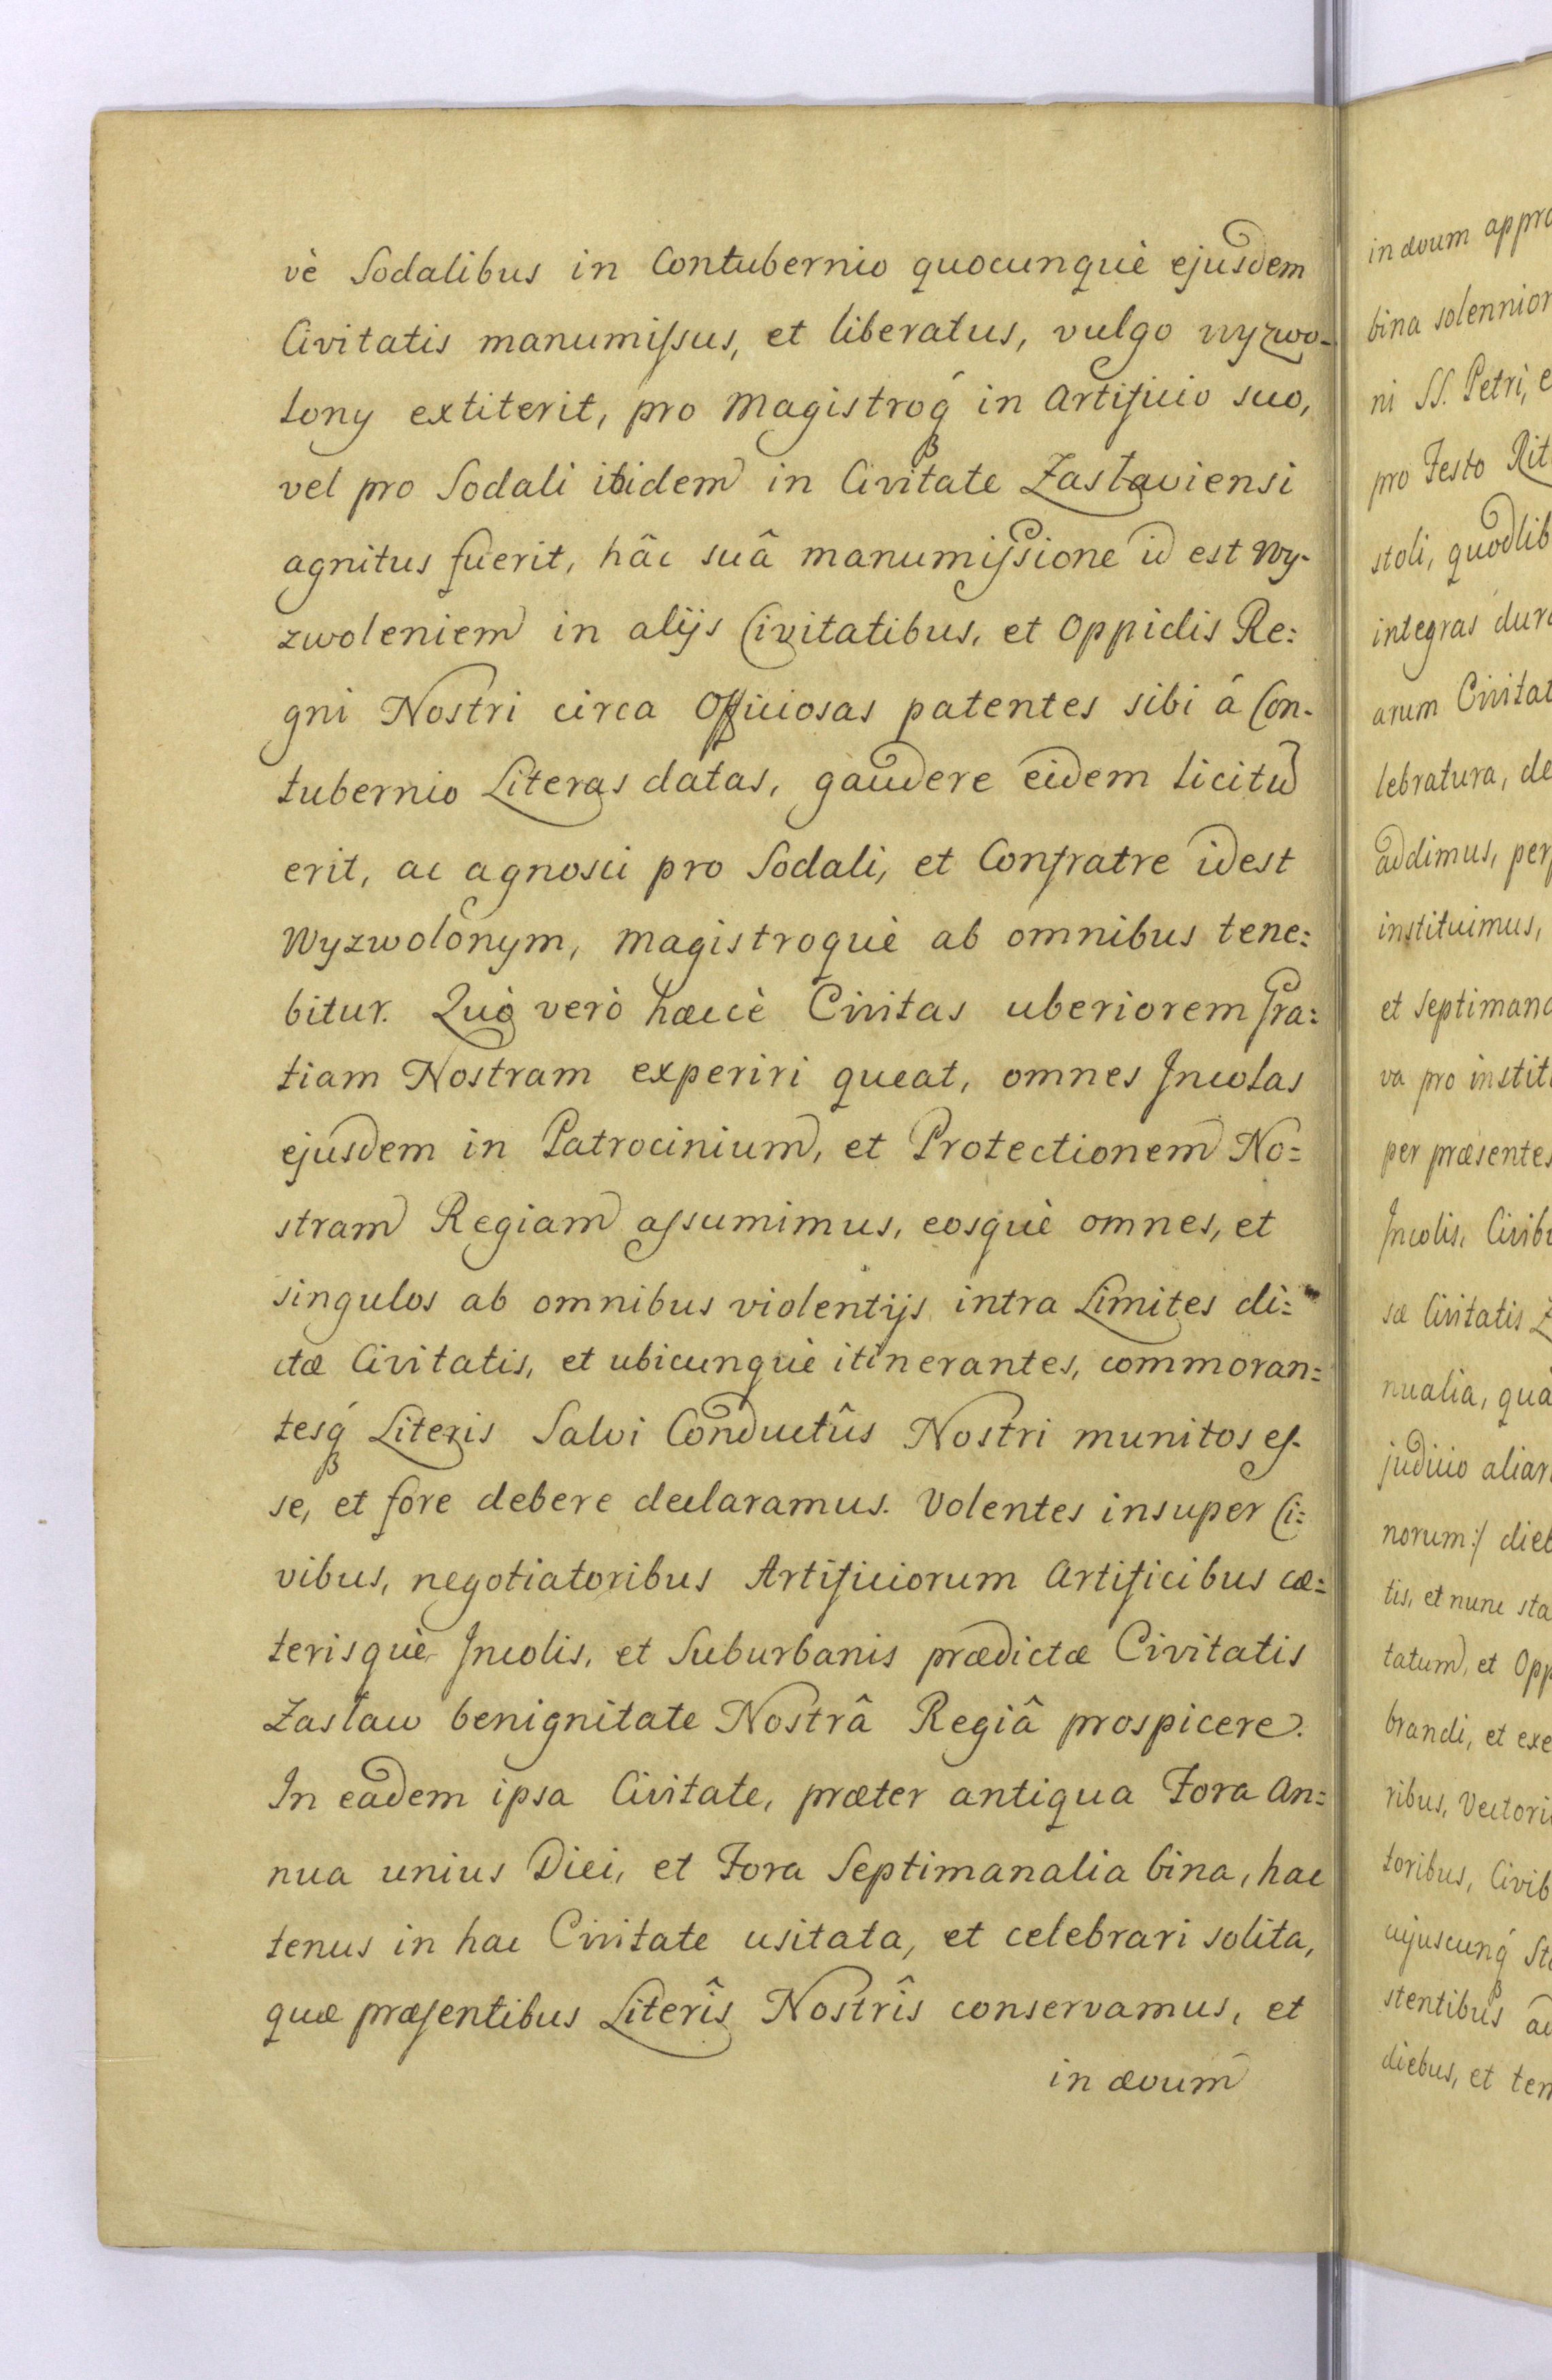 vè Sodalibus in Contubernio quocunquè ejusdem
Civitatis manumiſsus, et liberatus, vulgo wyzwo-
lony extiterit, pro Magistroq́ in Artificio suo,
vel pro Sodali ibidem in Civitate Zaslaviensi
agnitus fuerit, hâc suâ manumiſsione id est Wy-
zwoleniem in alijs Civitatibus, et Oppidis Re:
gni Nostri circa Officiosas patentes sibi á Con-
tubernio Literas datas, gaudere eidem licitum
erit, ac agnosci pro Sodali, et Confratre idest
Wyzwolonym, Magistroquè ab omnibus tene:
bitur. Quò verò hæccè Civitas uberiorem Gra:
tiam Nostram experiri queat, omnes Incolas
ejusdem in Patrocinium, et Protectionem No:
stram Regiam aſsumimus, eosquè omnes, et
singulos ab omnibus violentijs intra Limites di:
ctæ Civitatis, et ubicunquè itinerantes, commoran:
tesq́ Literis Salvi Conductûs Nostri munitos eſ-
se, et fore debere declaramus. Volentes insuper Ci:
vibus, negotiatoribus Artificiorum Artificibus cæ:
terisquè Incolis, et Suburbanis prædictæ Civitatis
Zaslaw benignitate Nostrâ Regiâ prospicere.
In eadem ipsa Civitate, præter antiqua Fora An:
nua unius Diei, et Fora Septimanalia bina, hac
tenus in hac Civitate usitata, et celebrari solita,
quæ præſentibus Literîs Nostrîs conservamus, et
in ævum
in ævum appro
bina solennior
ni SS. Petri, e
pro Festo Rit
stoli, quodlib
integras dura
arum Civitat
lebratura, de
addimus, per
instituimus,
et Septimana
va pro instit
per præsentes
Incolis, Civib
sæ Civitatis Z
nualia, qua
judicio aliar
norum:/ dieb
tis, et nunc sta
tatum, et Opp
brandi, et exe
ribus, Vectori
toribus, Civib
cujuscunq́ St
stentibus ad
diebus, et tem